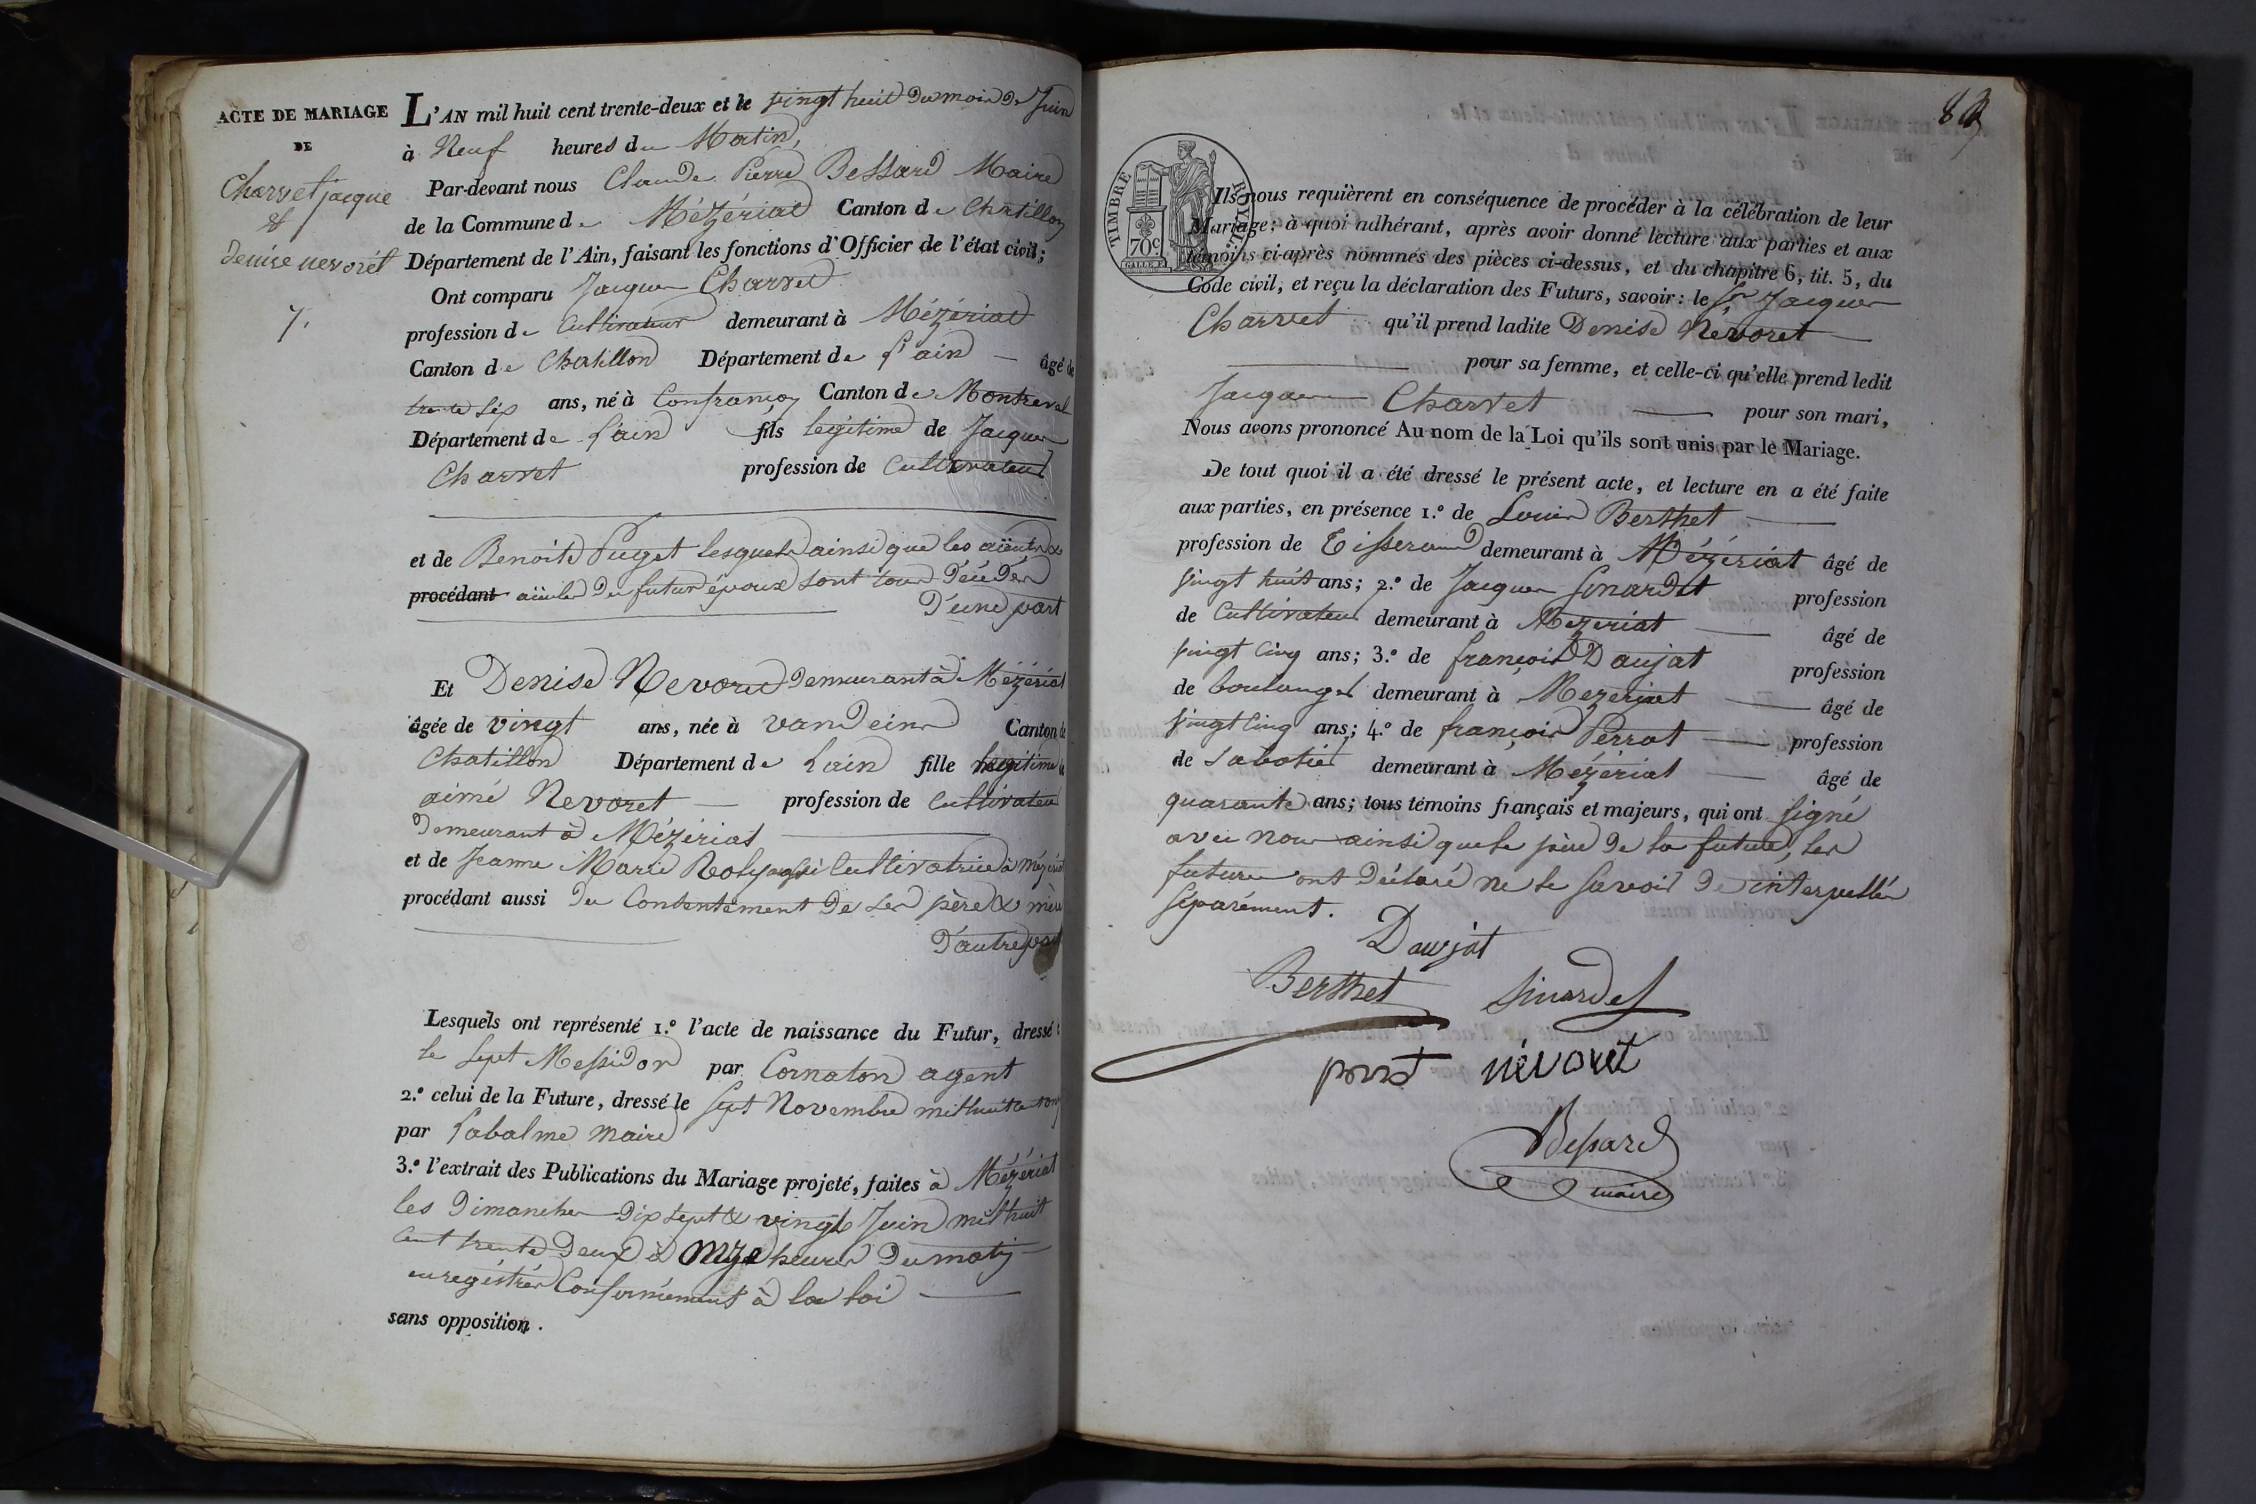 ACTE DE MARIAGE
DE
Charvet jacque
&
denise nevorét
7.
L'AN mil huit cent trente-deux et le vingt huit du mois de Juin
à Neuf heures du Matin,
Par-devant nous Claude Pierre Bessard Maire
de la Commune de Mézériat Canton de Chatillon
Département de l'Ain, faisant les fonctions d'Officier de l'état civil;
Ont comparu Jacques Charvet
profession de Cultivateur demeurant à Mézériat
Canton de Chatillon Département de l'ain âgé de
trente sep ans, né à Confrançon Canton de Montrevel
Département de l'ain fils légitime de Jacques
Charvet profession de Cultivateur
et de Benoite Puget lesquels ainsi que les aïeuls &
procédant aïeules du futur époux sont tous décédés
D'une part
Et Denise Nevoret demeurant à Mézériat
âgée de vingt ans, née à vandeins Canton de
Chatillon Département de l'ain fille légitime de
aimé Nevoret profession de Cultivateur
demeurant à Mézériat
et de Jeanne Marie cultivatrice à Mézériat
procédant aussi du Consentement de ses père & mère
D'autre part
Lesquels ont représenté 1.º l'acte de naissance du Futur, dressé
le sept Messidor par Cornaton agent
2.º celui de la Future, dressé le sept Novembre mil huit cent onze
par Labalme maire
3.º l'extrait des Publications du Mariage projeté, faites à Mézériat
les Dimanches dix sept & vingt Juin mil huit
cent trente deux à Onze heures du matin
enregistrés Conformément à la loi
sans opposition.
TIMBRE ROYAL
70 c.
Ils nous requièrent en conséquence de procéder à la célébration de leur
Mariage; à quoi adhérant, après avoir donné lecture aux parties et aux
témoins ci-après nommés des pièces ci-dessus, et du chapitre 6, tit. 5, du
Code civil, et reçu la déclaration des Futurs, savoir: le Sr Jacques
Charvet qu'il prend ladite Denise Nevoret
pour sa femme, et celle-ci qu'elle prend ledit
Jacques Charvet pour son mari,
Nous avons prononcé Au nom de la Loi qu'ils sont unis par le Mariage.
De tout quoi il a été dressé le présent acte, et lecture en a été faite
aux parties, en présence 1.º de Louis Berthet
profession de Tisserand demeurant à Mézériat âgé de
vingt huit ans; 2.º de Jacques Sinardet profession
de Cultivateur demeurant à Mezeriat âgé de
vingt cinq ans; 3.º de françois Daujat profession
de boulanger demeurant à Mezeriat âgé de
vingt cinq ans; 4.º de françois Perrat profession
de Sabotier demeurant à Mézériat âgé de
quarante ans; tous témoins français et majeurs, qui ont signé
avec nous ainsi que le père de la future, les
futurs ont déclaré ne le savoir de ce interpellés
séparément.
Daujat
Berthet Sinardet
névoret
Bessard
maire